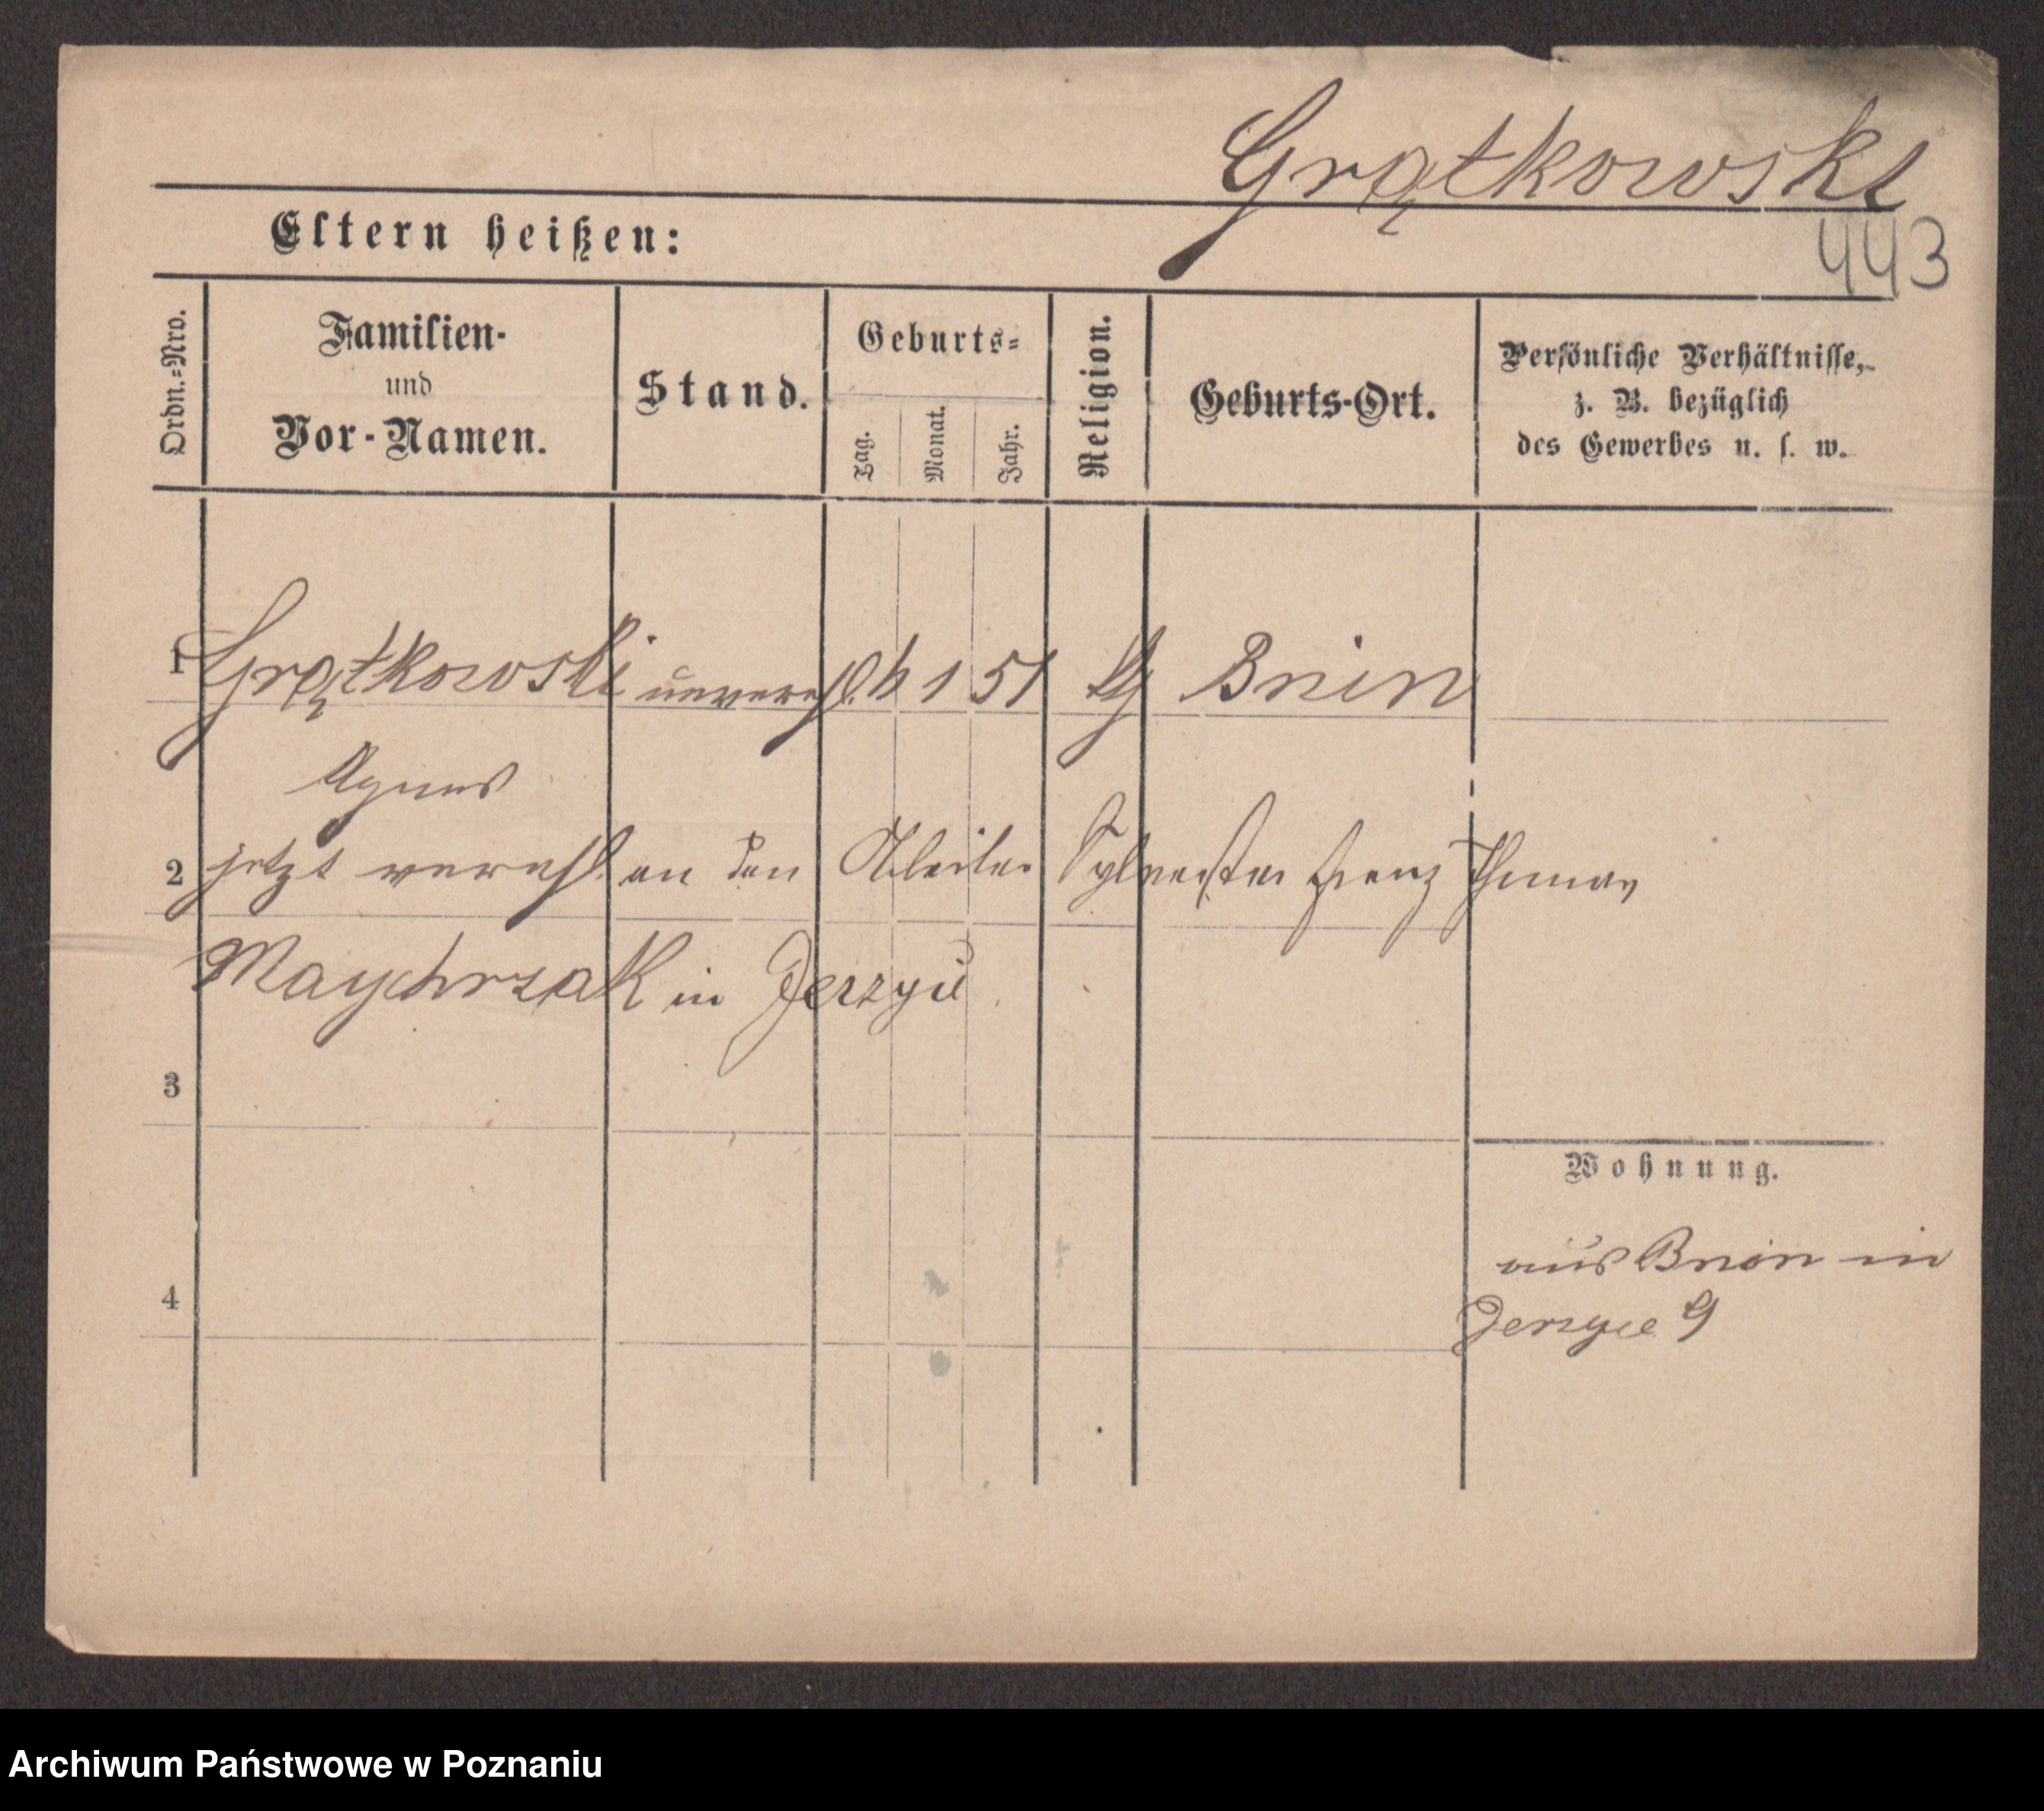 Grątkowski
443
Eltern heißen:
Ordn.=Nro.
Familien-
und
Vor-Namen.
Stand.
Geburts=
Tag.
Monat.
Jahr.
Religion.
Geburts-Ort.
Persönliche Verhältnisse,
z. B. bezüglich
des Gewerbes u. s. w.
1 Grątkowski unverehl. 6 1 51 Bnin
Agnes
2 jetzt verehl. an den Arbeiter Sylvester Franz Thomas
Maychrzak in Jerzyce
3
Wohnung.
4
aus Bnin in
Jerzyce 9
Archiwum Państwowe w Poznaniu